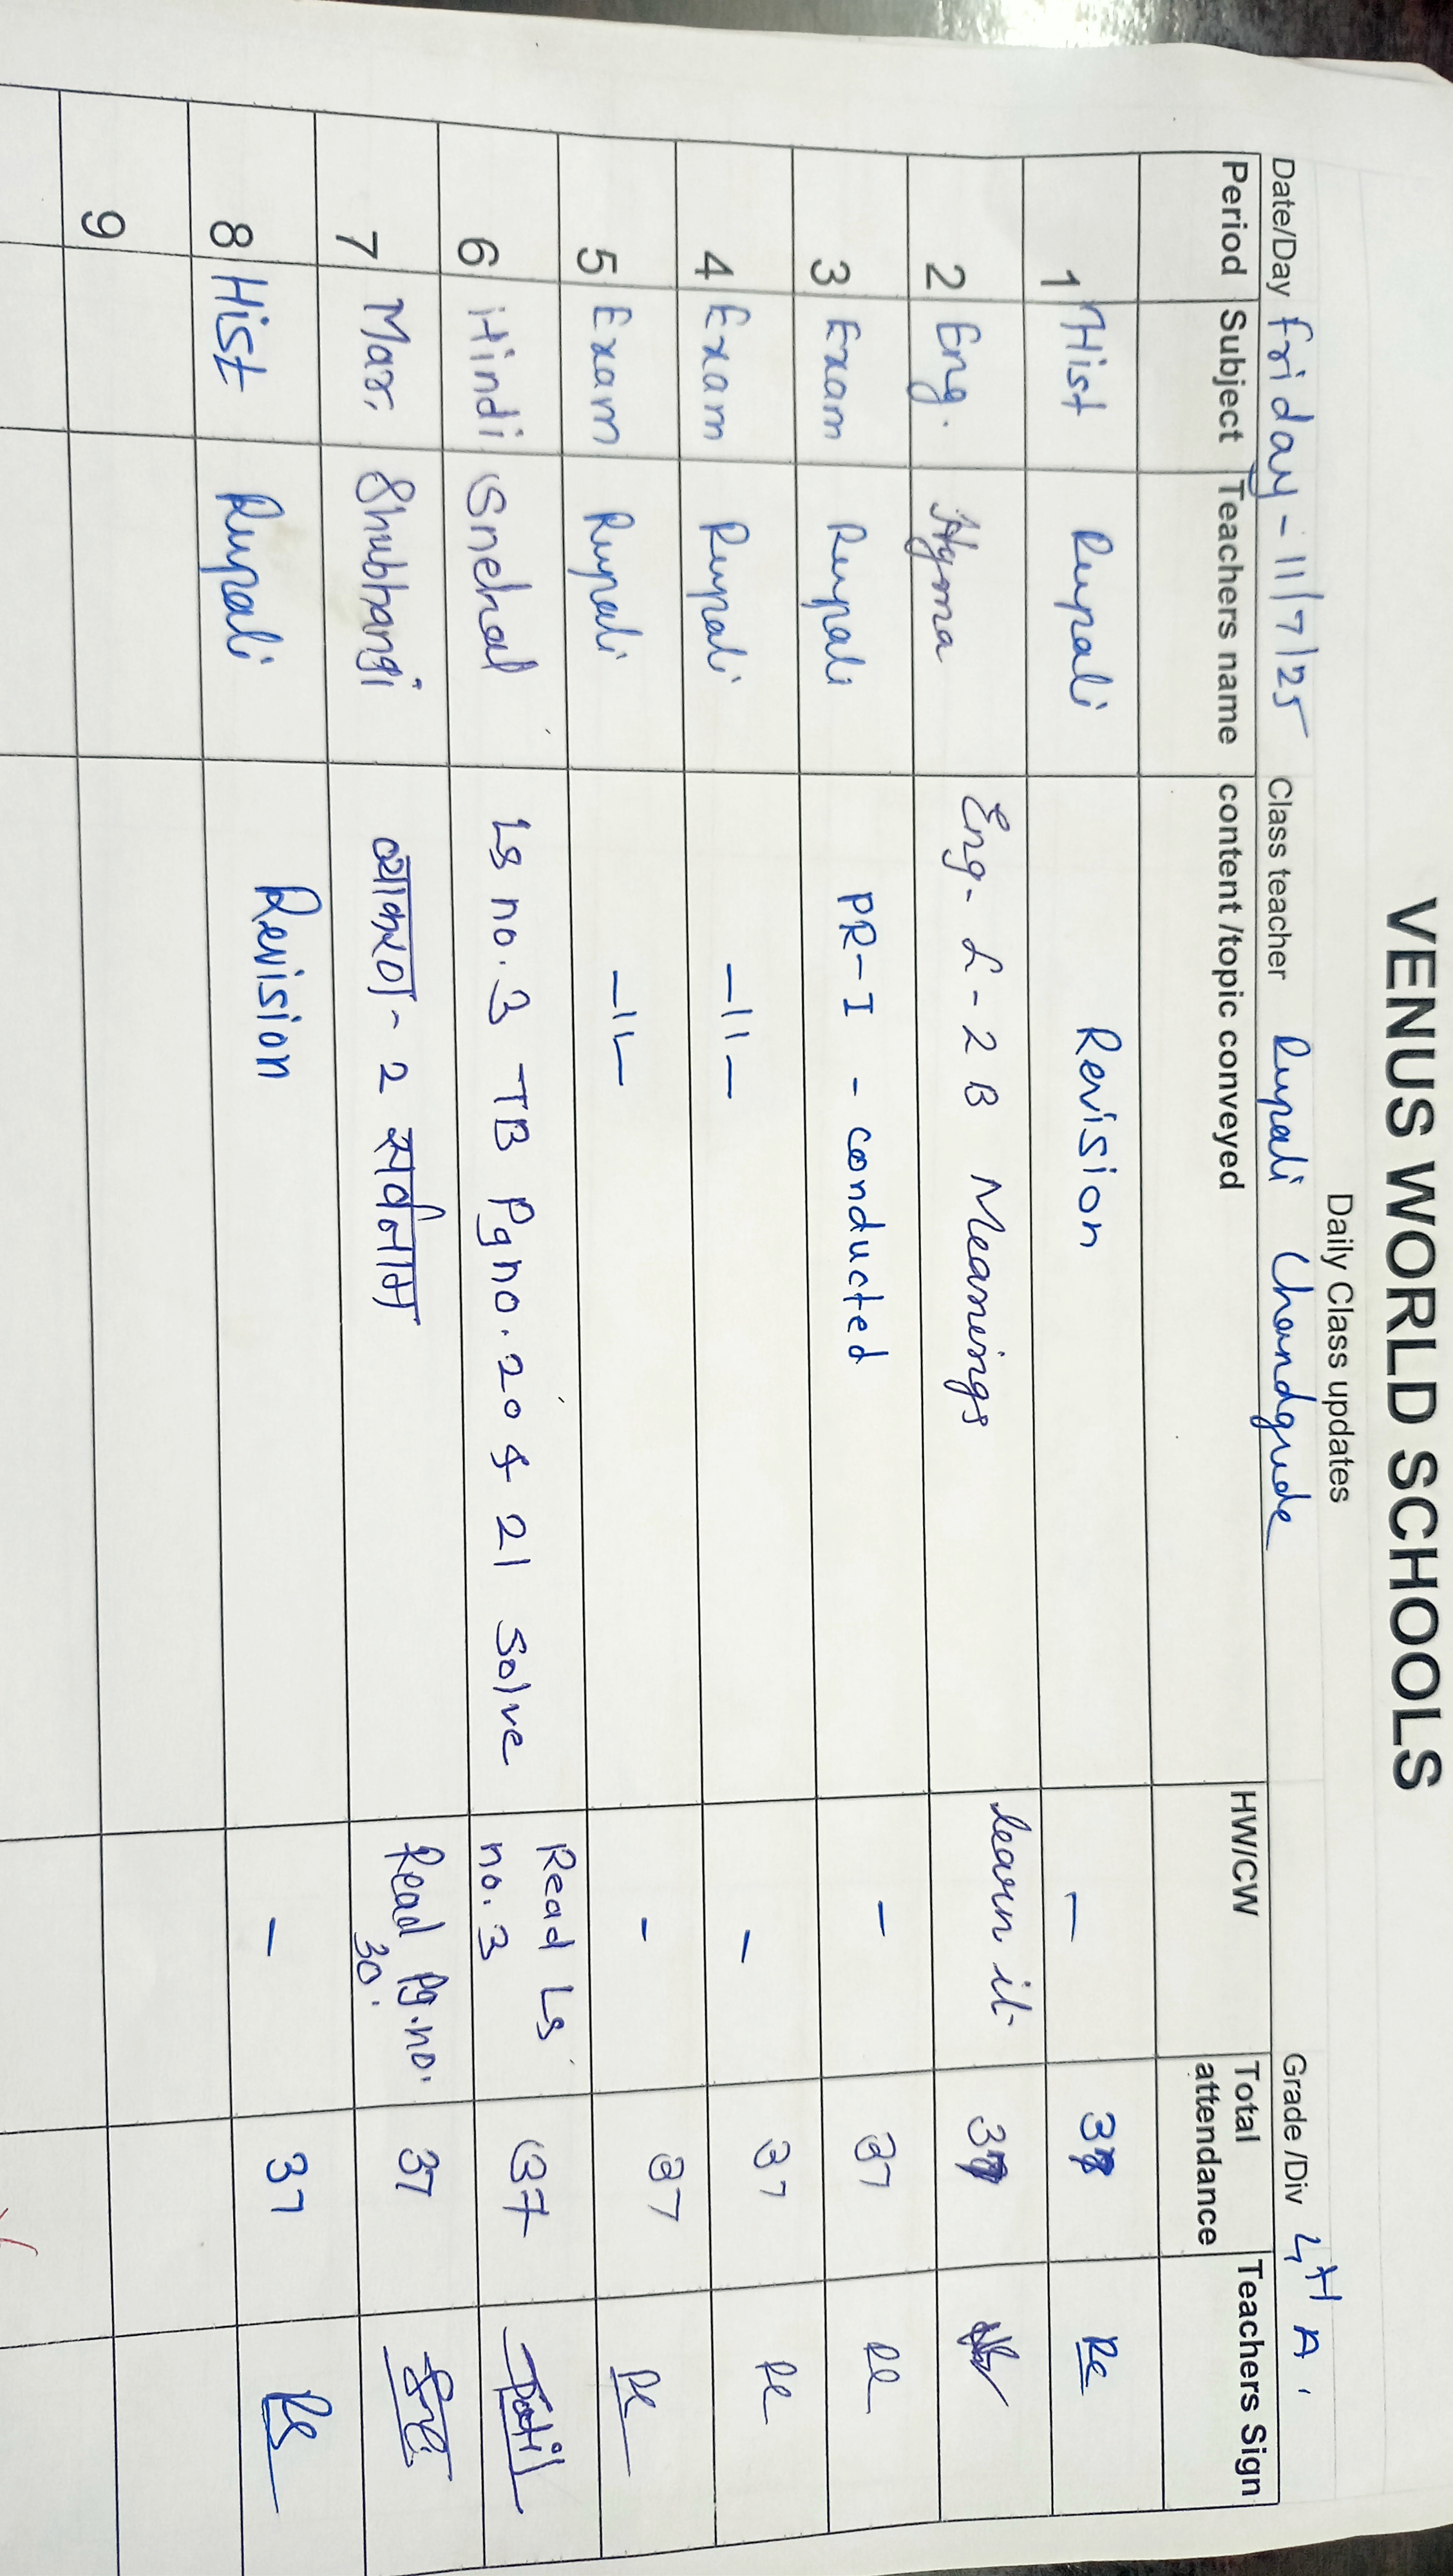 VENUS WORLD SCHOOLS
Daily Class updates
Date/Day Friday - 11/7/25 Class teacher Rupali Chandgude Grade /Div 4th A.
Period Subject Teachers name content /topic conveyed HW/CW Total attendance Teachers Sign
1 Hist Rupali Revision - 37 Rc
2 Eng. Hyma Eng- L - 2 B Meanings learn it. 37
3 Exam Rupali PR-I - conducted - 37 Rc
4 Exam Rupali -11- - 37 Rc
5 Exam Rupali -11- - 37 Rc
6 Hindi Snehal Ls no. 3 TB Pg no. 20 & 21 Solve Read Ls no. 3 37 Patil
7 Mar. Shubhangi व्याकरण - 2 सर्वनाम Read Pg. no. 30. 37
8 Hist Rupali Revision - 37 Rc
9